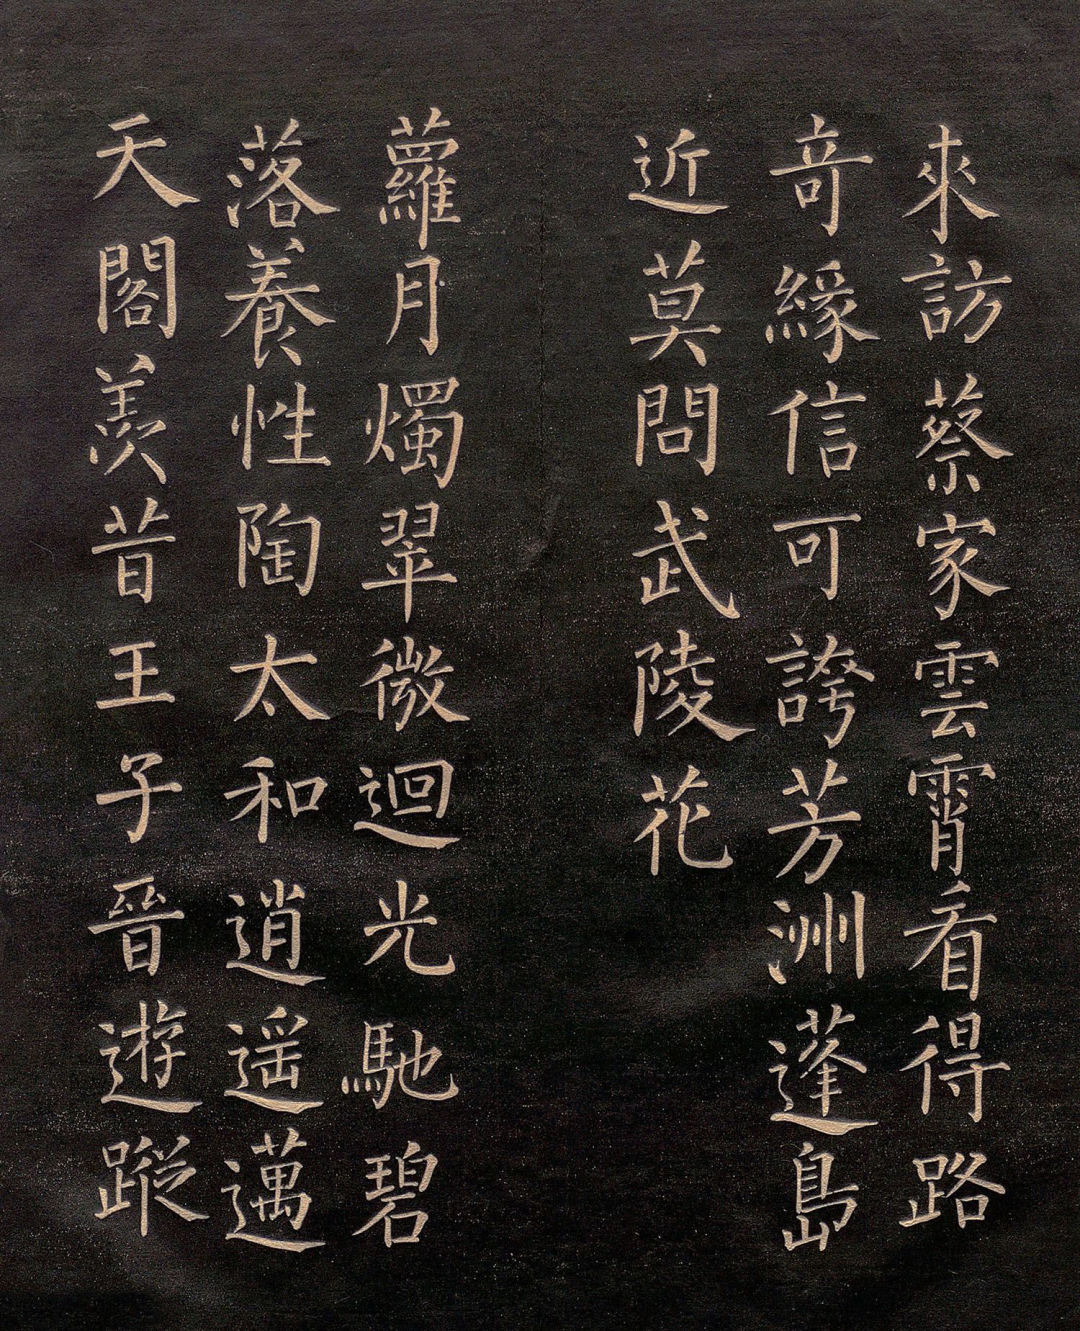 來訪蔡家雲霄看得路
竒緣信可誇芳洲蓬島
近莫問武陵花
蘿月燭翠微迴光馳碧
落養性陶太和逍遥邁
天閣羨昔王子晉遊蹤